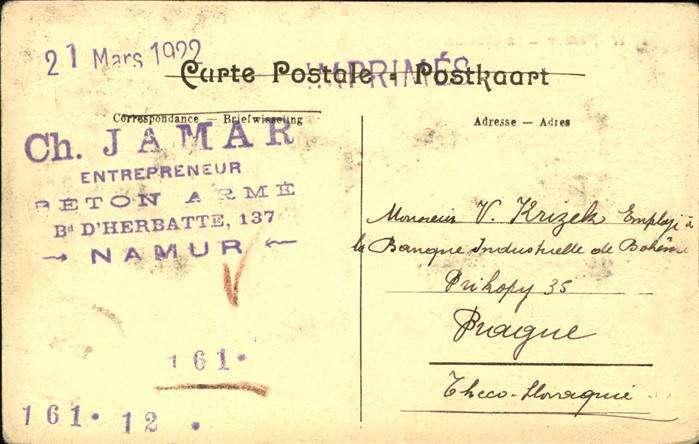 21 Mars 1922
IMPRIMÉS
Carte Postale - Postkaart
Correspondance — Briefwisseling
Adresse — Adres
Ch. JAMAR
ENTREPRENEUR
BÉTON ARMÉ
Bd D'HERBATTE, 137
NAMUR
161.
161. 12.
Monsieur V. Krizek Employé à
la Banque Industrielle de Bohême
Prikopy 35
Prague
Theco-Slovaquie